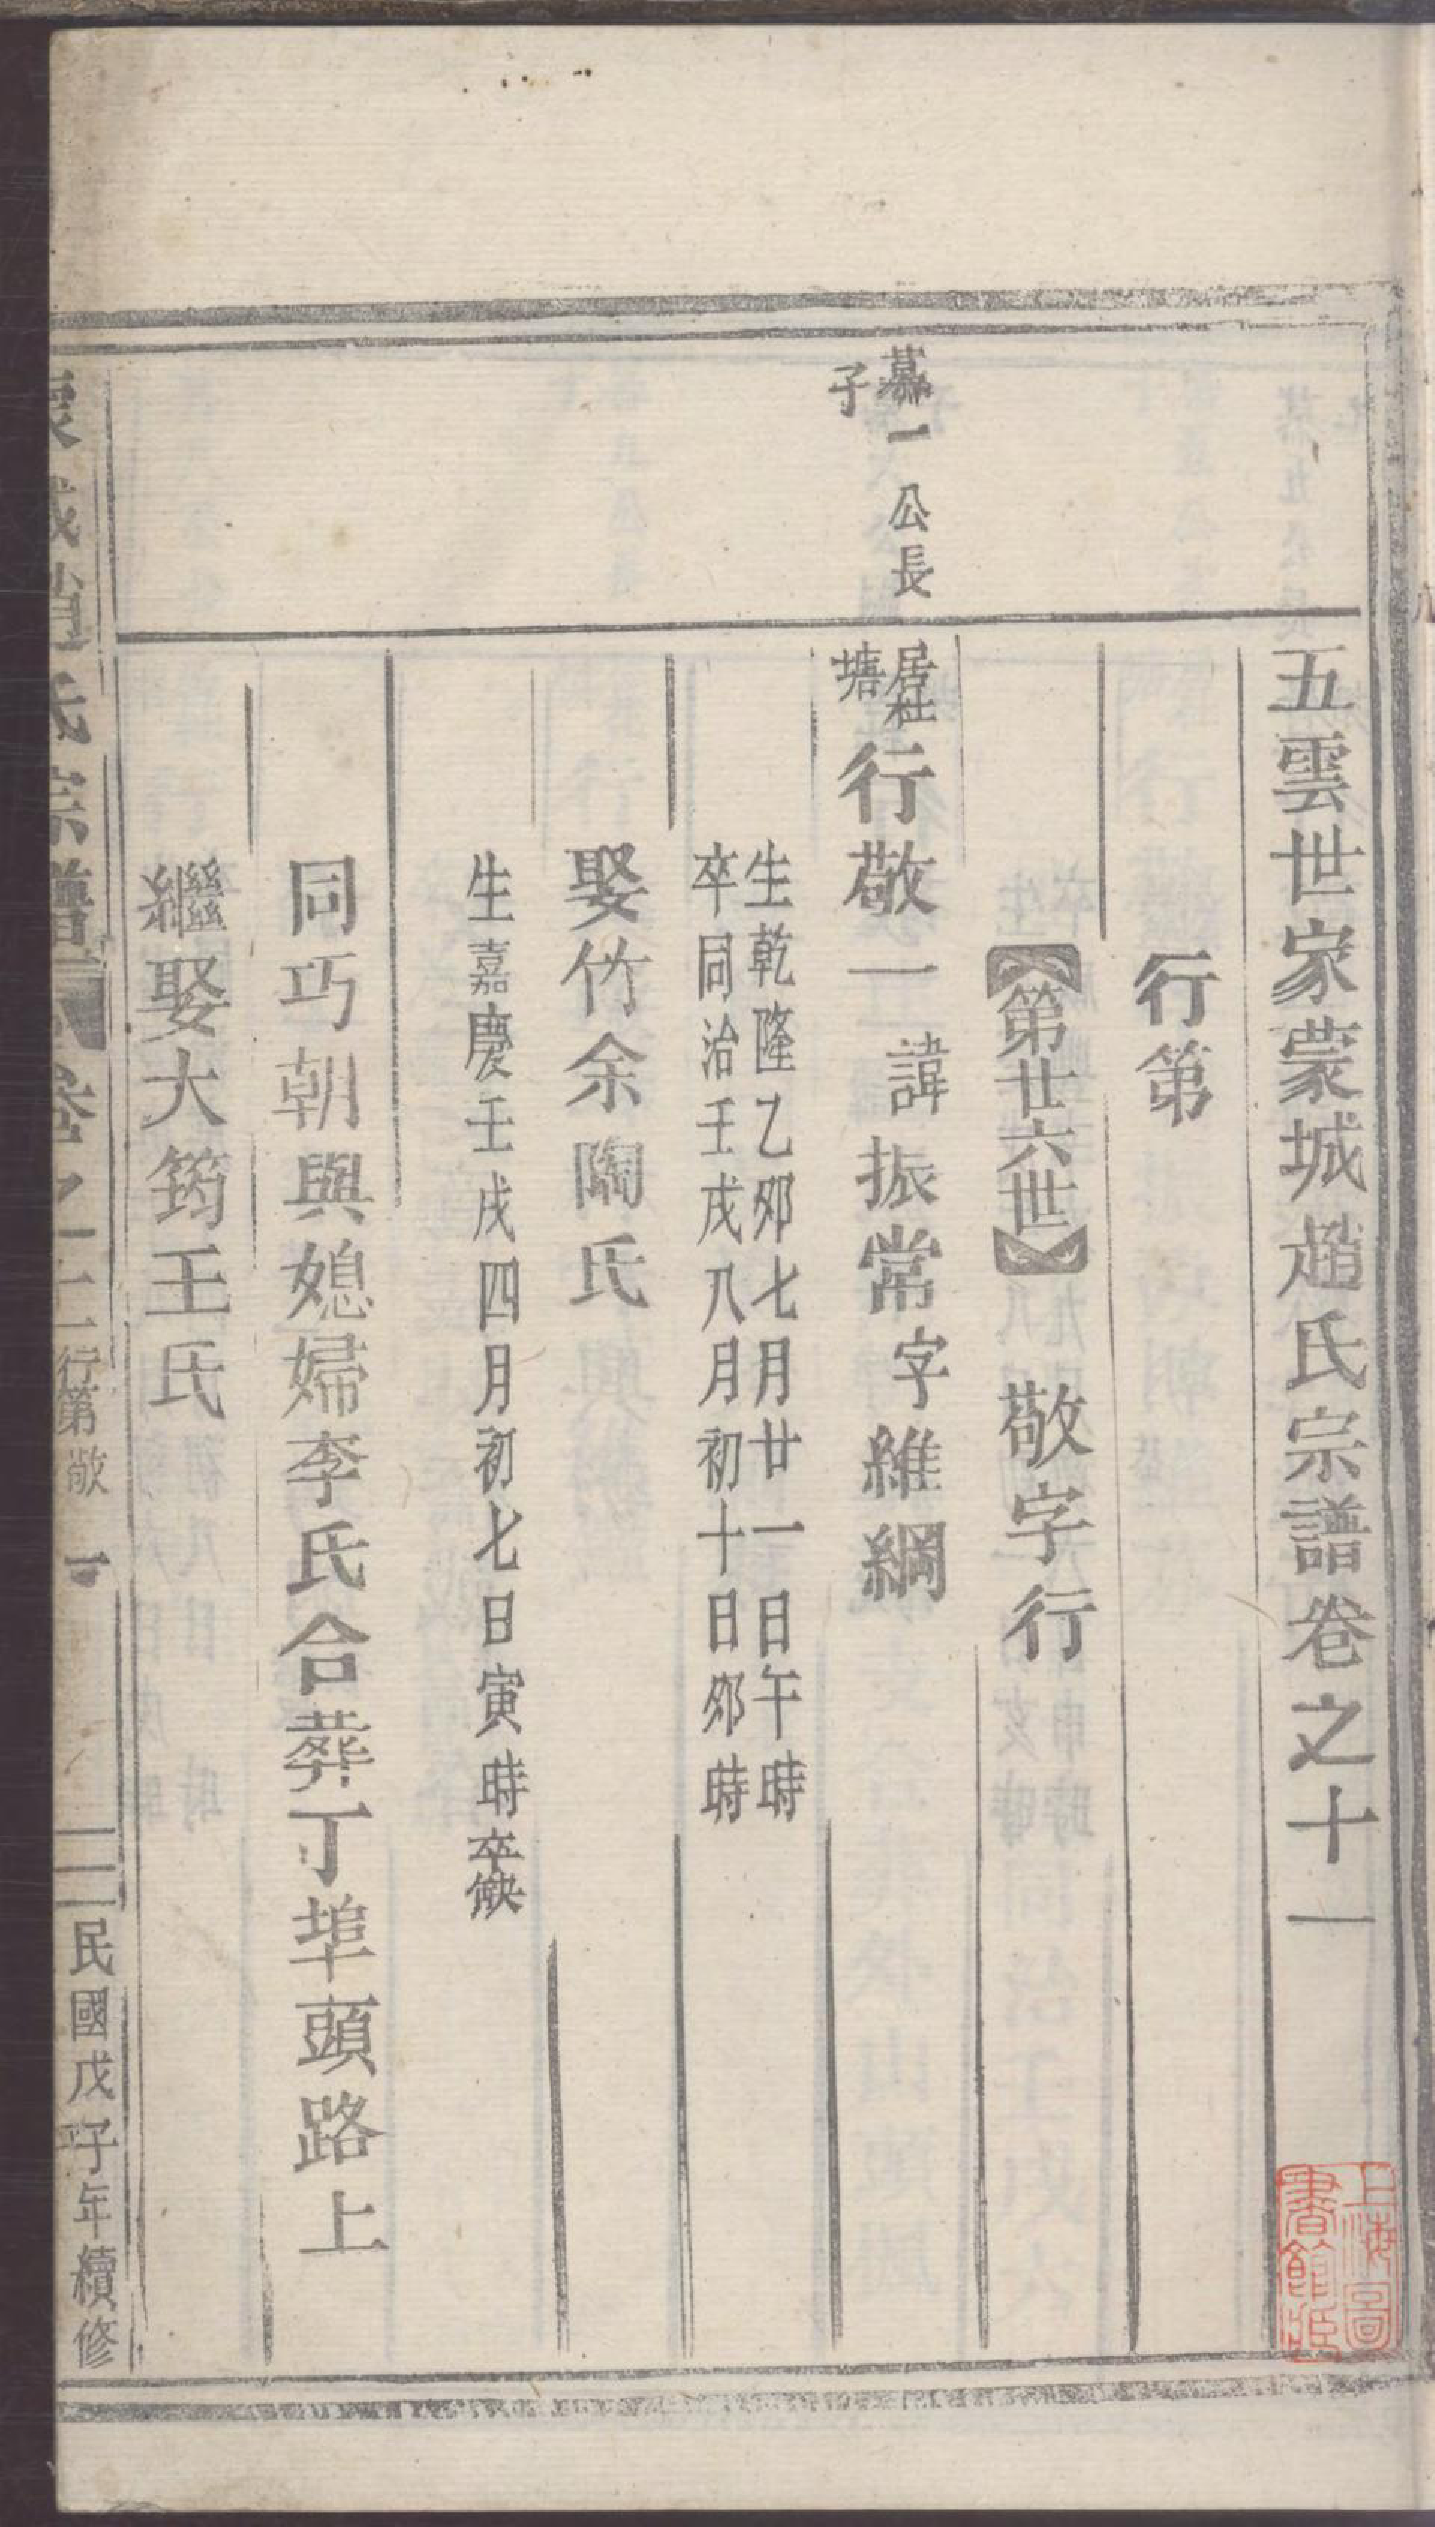 五雲世家蒙城趙氏宗譜卷之十一
行第
第廿六世 敬字行
慕一公長
子
居社
塘
行敬一 諱振常字維綱
生乾隆乙夘七月廿一日午時
卒同治壬戌八月初十日夘時
娶竹余陶氏
生嘉慶壬戌四月初七日寅時卒缺
同巧朝與媳婦李氏合葬丁埠頭路上
繼娶大筠王氏
趙氏宗譜 卷之十一 行第敬 一 民國戊子年續修
上海圖
書館藏